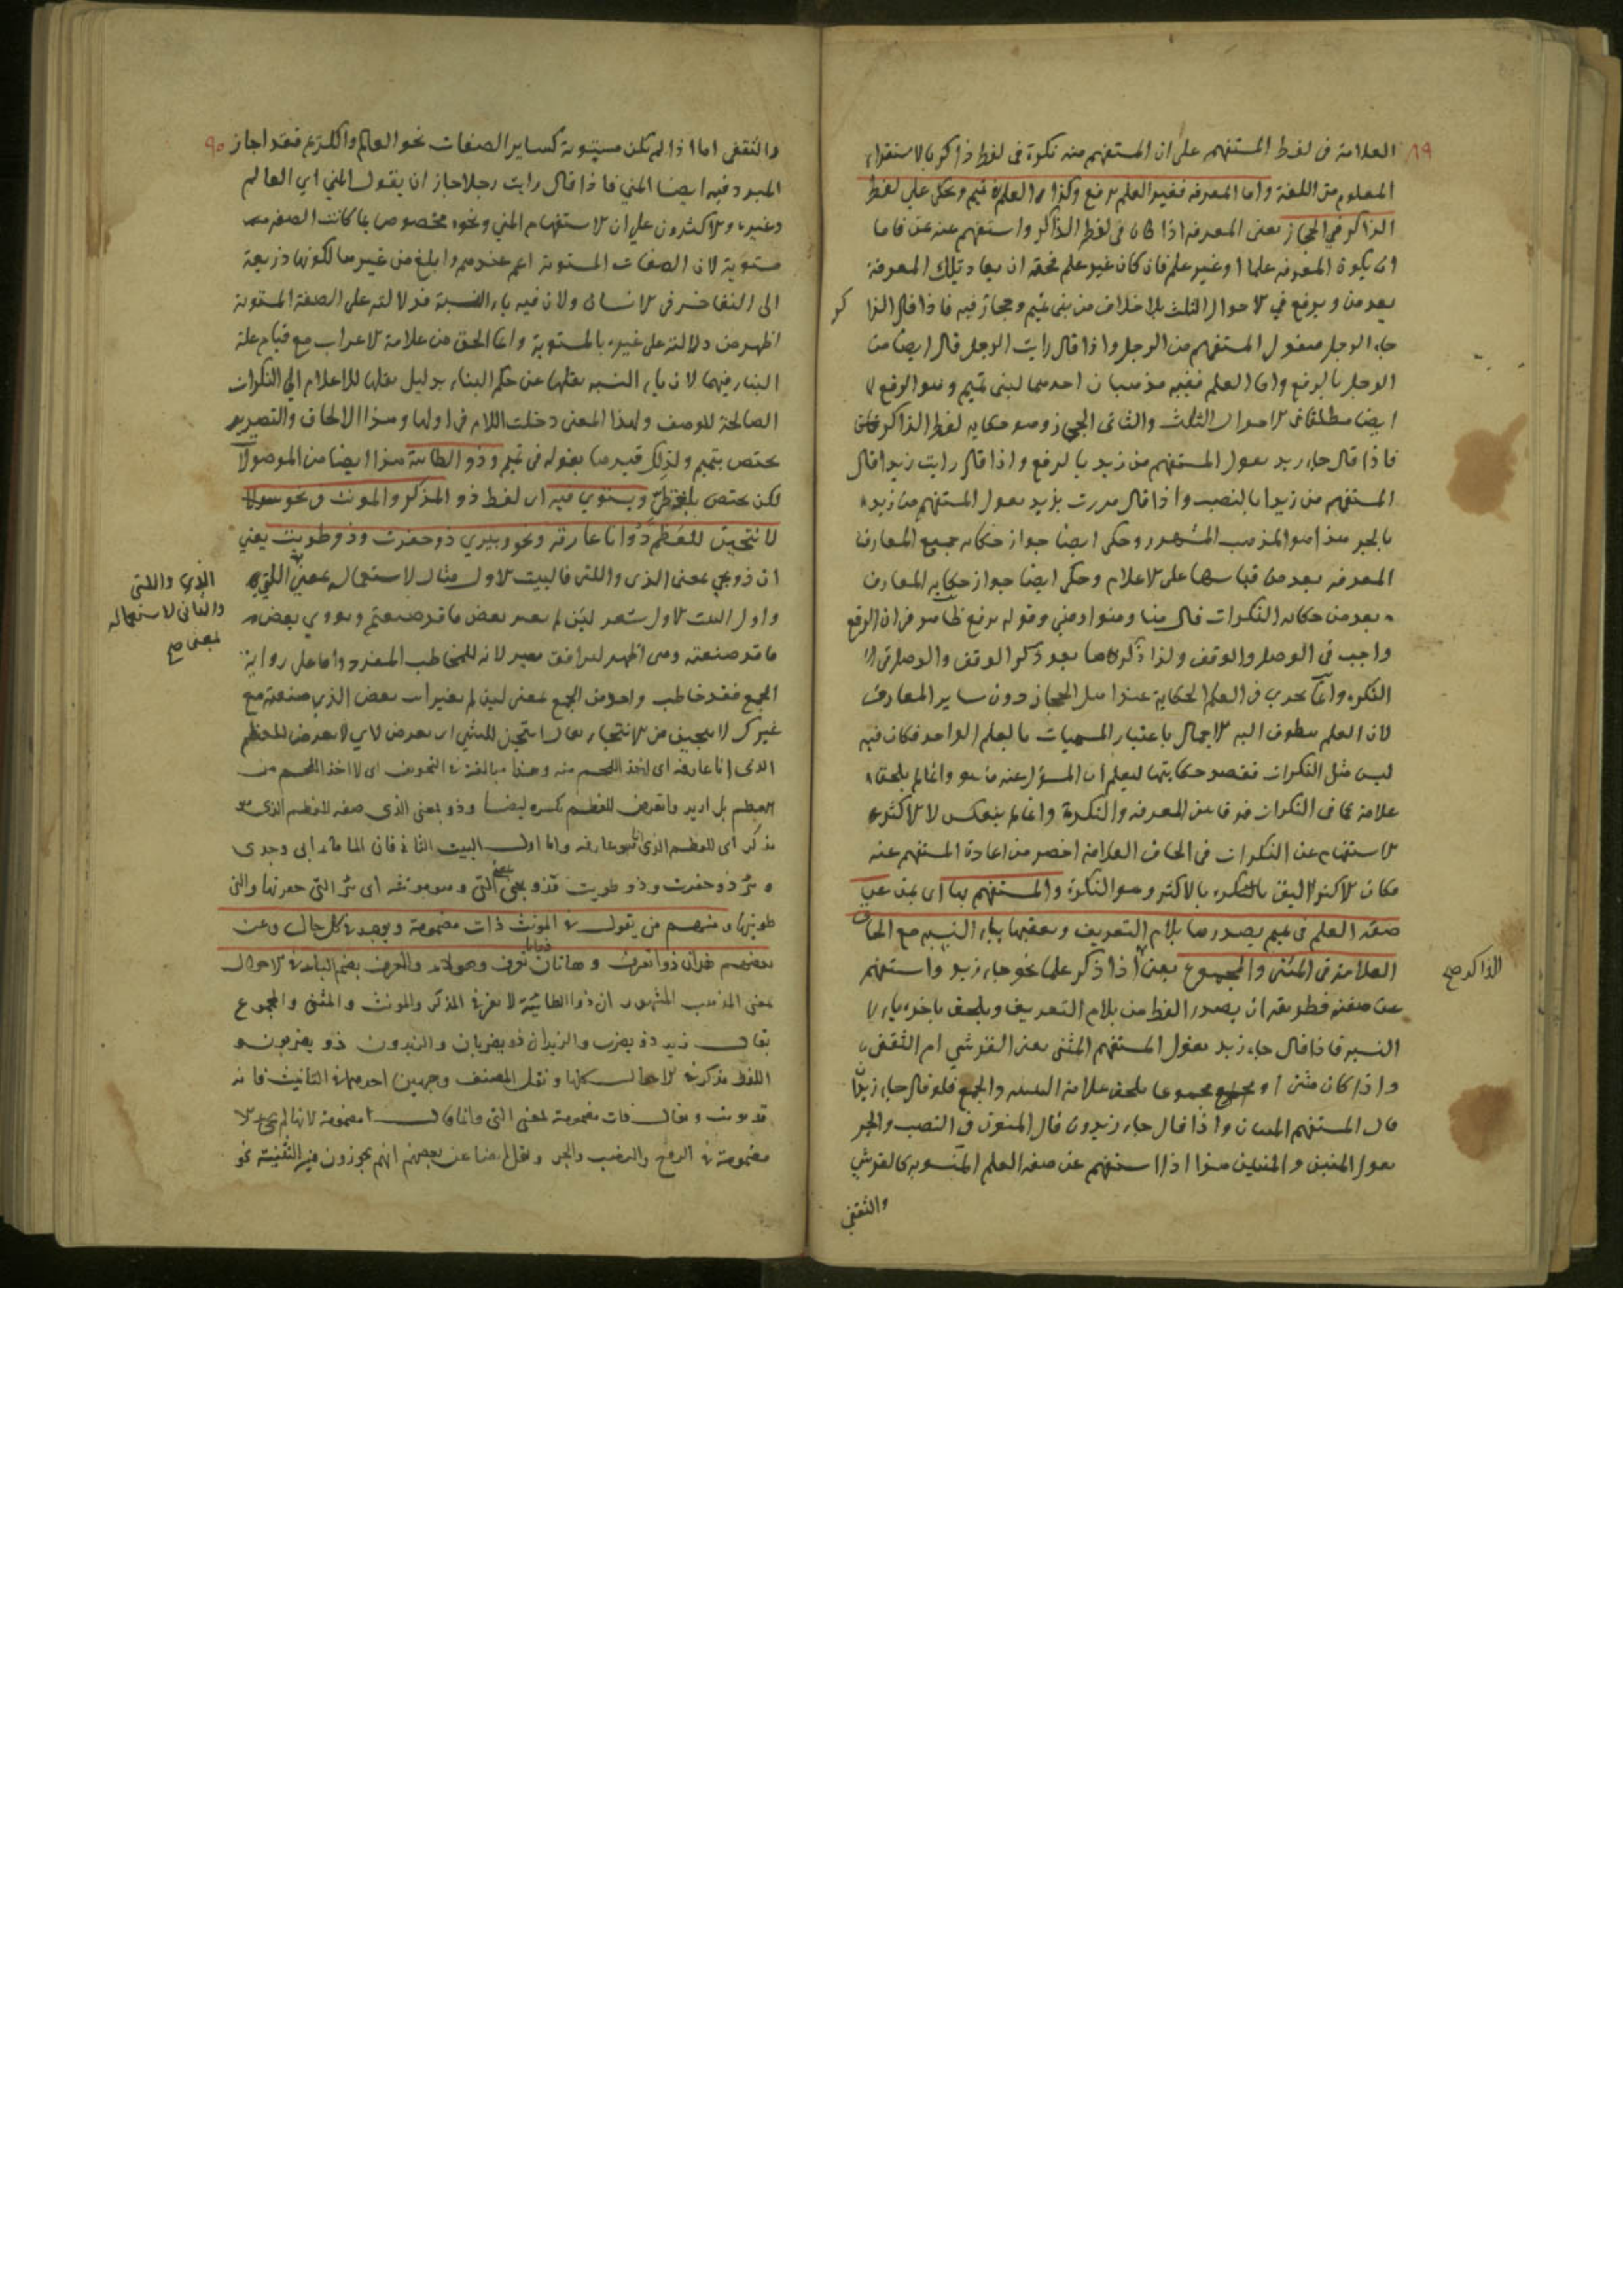 ٨٩
العلامة فى لفظ المستفهم على ان المستفهم منه نكرة فى لفظ ذاكره بالاستقراء
المعلوم من اللغة واما المعرفه فغير العلم يرفع وكذا العلم فى تميم ويحكى على لفظ
الذاكر في الحجاز يعنى المعرفه اذا كان فى لفظ الذاكر واستفهم عنه بمن فاما
ان يكون المعرفه علما او غير علم فان كان غير علم فحقه ان يعاد تلك المعرفة
بعد من ويرفع في الاحوال الثلث بلا خلاف من بنى تميم وحجاز فيه فاذا قال الذاكر
جاء الرجل فيقول المستفهم من الرجل واذا قال رايت الرجل قال ايضا من
الرجل بالرفع واما العلم ففيه مذهبان احدهما لبنى تميم وهو الرفع
ايضا مطلقا فى الاحوال الثلث والثانى الحجاز وهو حكايه لفظ الذاكر
فاذا قال جاء زيد يقول المستفهم من زيد بالرفع واذا قال رايت زيدا قال
المستفهم من زيدا بالنصب واذا قال مررت بزيد يقول المستفهم من زيد
بالجر هذا هو المذهب المشهور وحكى ايضا جواز حكايه جميع المعارف
المعرفه بعد من قياسها على الاعلام وحكى ايضا جواز حكايه المعارف
بعد من حكايه النكرات فقال منا ومنوا ومنى وقوله يرفع ظاهر فى ان الرفع
واجب فى الوصل والوقف ولذا ذكرها بعد ذكر الوقف والوصل فى
النكره وانما يجرى فى العلم الحكاية عند اهل الحجاز دون ساير المعارف
لان العلم يتطرق اليه الاجمال باعتبار المسميات بالعلم الواحد فكان فيه
لبس مثل النكرات فقصد حكايتها ليعلم ان المسؤل عنه ما هو وانما لم يلحق
علامة كما فى النكرات فرقا بين المعرفه والنكرة وانما لم ينعكس لان الاكثر
الاستفهام عن النكرات فى الحاق العلامة اخصر من اعادة المستفهم عنه
فكان الاكثر اليق بالاكثر وهو النكرة والمستفهم بها اى بمن عن
صفه العلم فى تميم يصدرها بلام التعريف ويعقبها بياء النسبه مع الحاق
العلامة فى المثنى والمجموع يعنى اذا ذكر علما نحو جاء زيد واستفهم
الذاكر صح
عن صفته فطريقه ان يصدر لفظ من بلام التعريف ويلحق باخره ياء
النسبه فاذا قال جاء زيد يقول المستفهم المنى يعنى القرشي ام الثقفى
واذا كان مثنى او مجموعا يلحق علامة التثنيه والجمع فلو قال جاء زيدان
قال المستفهم المنيان واذا قال جاء زيدون قال المنيون وفى النصب والجر
يقول المنيين والمنيين هذا اذا استفهم عن صفه العلم المنسوبه كالقرشي
والثقفي
٩٠
والثقفى اما اذا لم تكن منسوبة كساير الصفات نحو العالم والكريم فقد اجاز
المبرد فيه ايضا المني فاذا قال رايت رجلا جاز ان يقول المني اي العالم
وغيره والاكثرون على ان الاستفهام المني ونحوه مخصوص بما كانت الصفه
منسوبة لان الصفات المنسوبة اعم عندهم وابلغ من غيرها لكونها ذريعة
الى التفاخر فى الانسان ولان فيه ياء النسبة فدلالته على الصفة المنسوبة
اظهر من دلالته على غيره بالمنسوبة وانما الحق من علامة الاعراب مع قيام علة
البناء فيهما لان ياء النسبه نقلها عن حكم البناء بدليل نقلها للاعلام الى النكرات
الصالحة للوصف ولهذا المعنى دخلت اللام فى اولها وهذا الالحاق والتصدير
يختص بتميم ولذلك قيدهما بقوله فى تميم وذو الطائية هذا ايضا من الموصولات
لكن يختص بلغة طي ويستوي فيه اى لفظ ذو المذكر والمونث فى نحو
لانتحين للعظم ذو انا عارقه ونحو وبيري ذو حفرت وذو طويت يعني
ان ذو يجي بمعنى الذى والتى فالبيت الاول مثال لاستعماله بمعنى
الذي والتى
والثانى لاستعماله
بمعنى صح
واول البيت الاول شعر لئن لم تغير بعض ما قد صنعتم ويروي بعض
ما قد صنعته وهى اظهر ليوافق تغير لانه للمخاطب المفرد واما على رواية
الجمع فقد خاطب واحدا من الجمع بمعنى لئن لم تغير انت بعض الذي صنعته مع
غيرك لانتحين من الانتحاء يقال انتحيت للشئ اى تعرض لاي لاتعرض للعظم
الذى انا عارقه اى اخذ اللحم منه وهذا مبالغة فى التخويف اى لا اخذ اللحم من
العظم بل اريد واتعرض للعظم بكسره ايضا وذو بمعنى الذى صفه للعظم الذى هو
مذكر اى للعظم الذى انا عارقه واما اول البيت الثانى فان الماء ماء ابى وجدى
وبئر ذو حفرت وذو طويت فذو بمعنى التى وهو مونثه اى بئر التى حفرتها والتى
طويتها ومنهم من يقول فى المونث ذات مضمومة ويوحد فى كل حال وعن
بعضهم هذان ذوا تعرف وهاتان ذواتا تعرف وهولاء ذوو تعرف بضم التاء فى الاحوال
بمعنى المذهب المشهور ان ذو الطائية لا تغير فى المذكر والمونث والمثنى والمجموع
يقال زيد ذو يضرب والزيدان ذو يضربان والزيدون ذو يضربون
اللفظ مذكر فى الاحوال كلها ونقل المصنف وجهين احدهما فى التانيث فانه
قد يونث ويقال ذات مضمومة لمعنى التى وانما قال مضمومة لانها لم يجئ الا
مضمومة فى الرفع والنصب والجر ونقل ايضا عن بعضهم انهم يجوزون فيه التثنية نحو